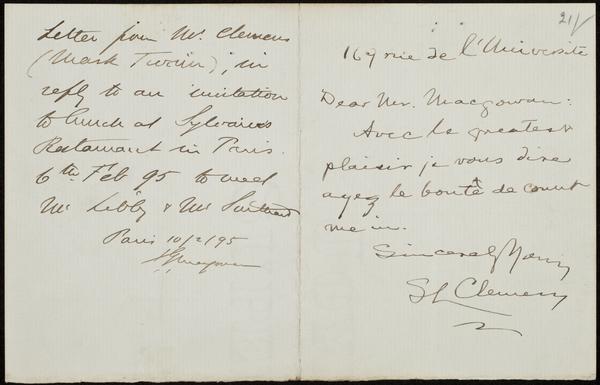 Letter from Mr. Clemens
(Mark Twain), in
reply to an invitation
to lunch at Sylvains
Restaurant in Paris.
6th Feb 95 to meet
Mr Libby & Mr
Paris 10/2/95
21/
169 rue de l'Université
Dear Mr. Macgowan:
Avec le greatest
plaisir je vous dire
ayez le bonté de count
me in.
Sincerely Yours
SL Clemens